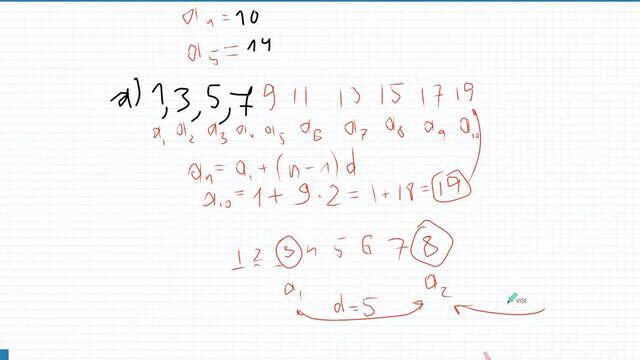 a₄ = 10
a₅ = 14
a) 1, 3, 5, 7 9 11 13 15 17 19
a₁ a₂ a₃ a₄ a₅ a₆ a₇ a₈ a₉ a₁₀
aₙ = a₁ + (n - 1) d
a₁₀ = 1 + 9 · 2 = 1 + 18 = 19
1 2 3 4 5 6 7 8
a₁ a₂
d = 5